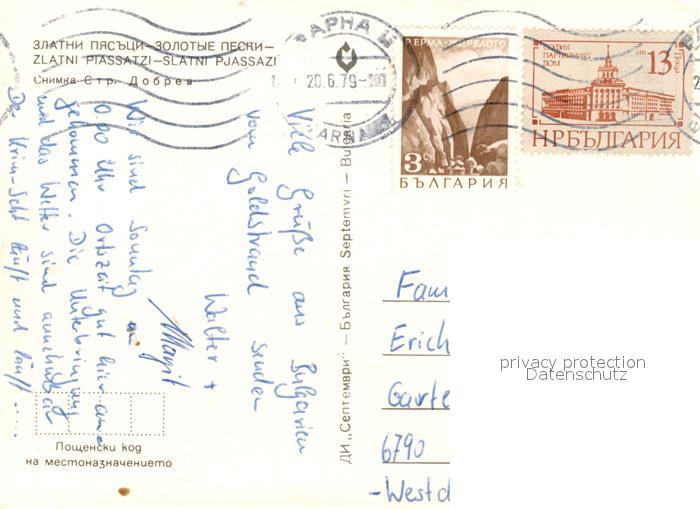 ЗЛАТНИ ПЯСЪЦИ—ЗОЛОТЫЕ ПЕСКИ—
ZLATNI PIASSATZI—SLATNI PJASSAZI
Снимка Стр. Добрев
ВАРНА Ц
20.6.79
VARNA
ЖДРЕЛОТО
3 СТ
БЪЛГАРИЯ
СОФИЯ
ПАРТИЙНИЯТ
ДОМ
13 СТ
ПОЩА
НРБЪЛГАРИЯ
Viele Grüße aus Bulgarien
vom Goldstrand senden
Walter +
Margit
Wir sind Sonntag
Uhr Ortszeit gut hier
gekommen. Die Unterbringung
und das Wetter sind
läuft und läuft ....
ДИ „Септември" — България Septemvri — Bulgaria
Fam
Erich
Garte
6790
-Westd
privacy protection
Datenschutz
Пощенски код
на местоназначението